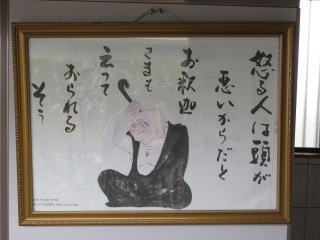 怒る人は頭が
悪いからだと
お釈迦
さまも
云って
おられる
そう